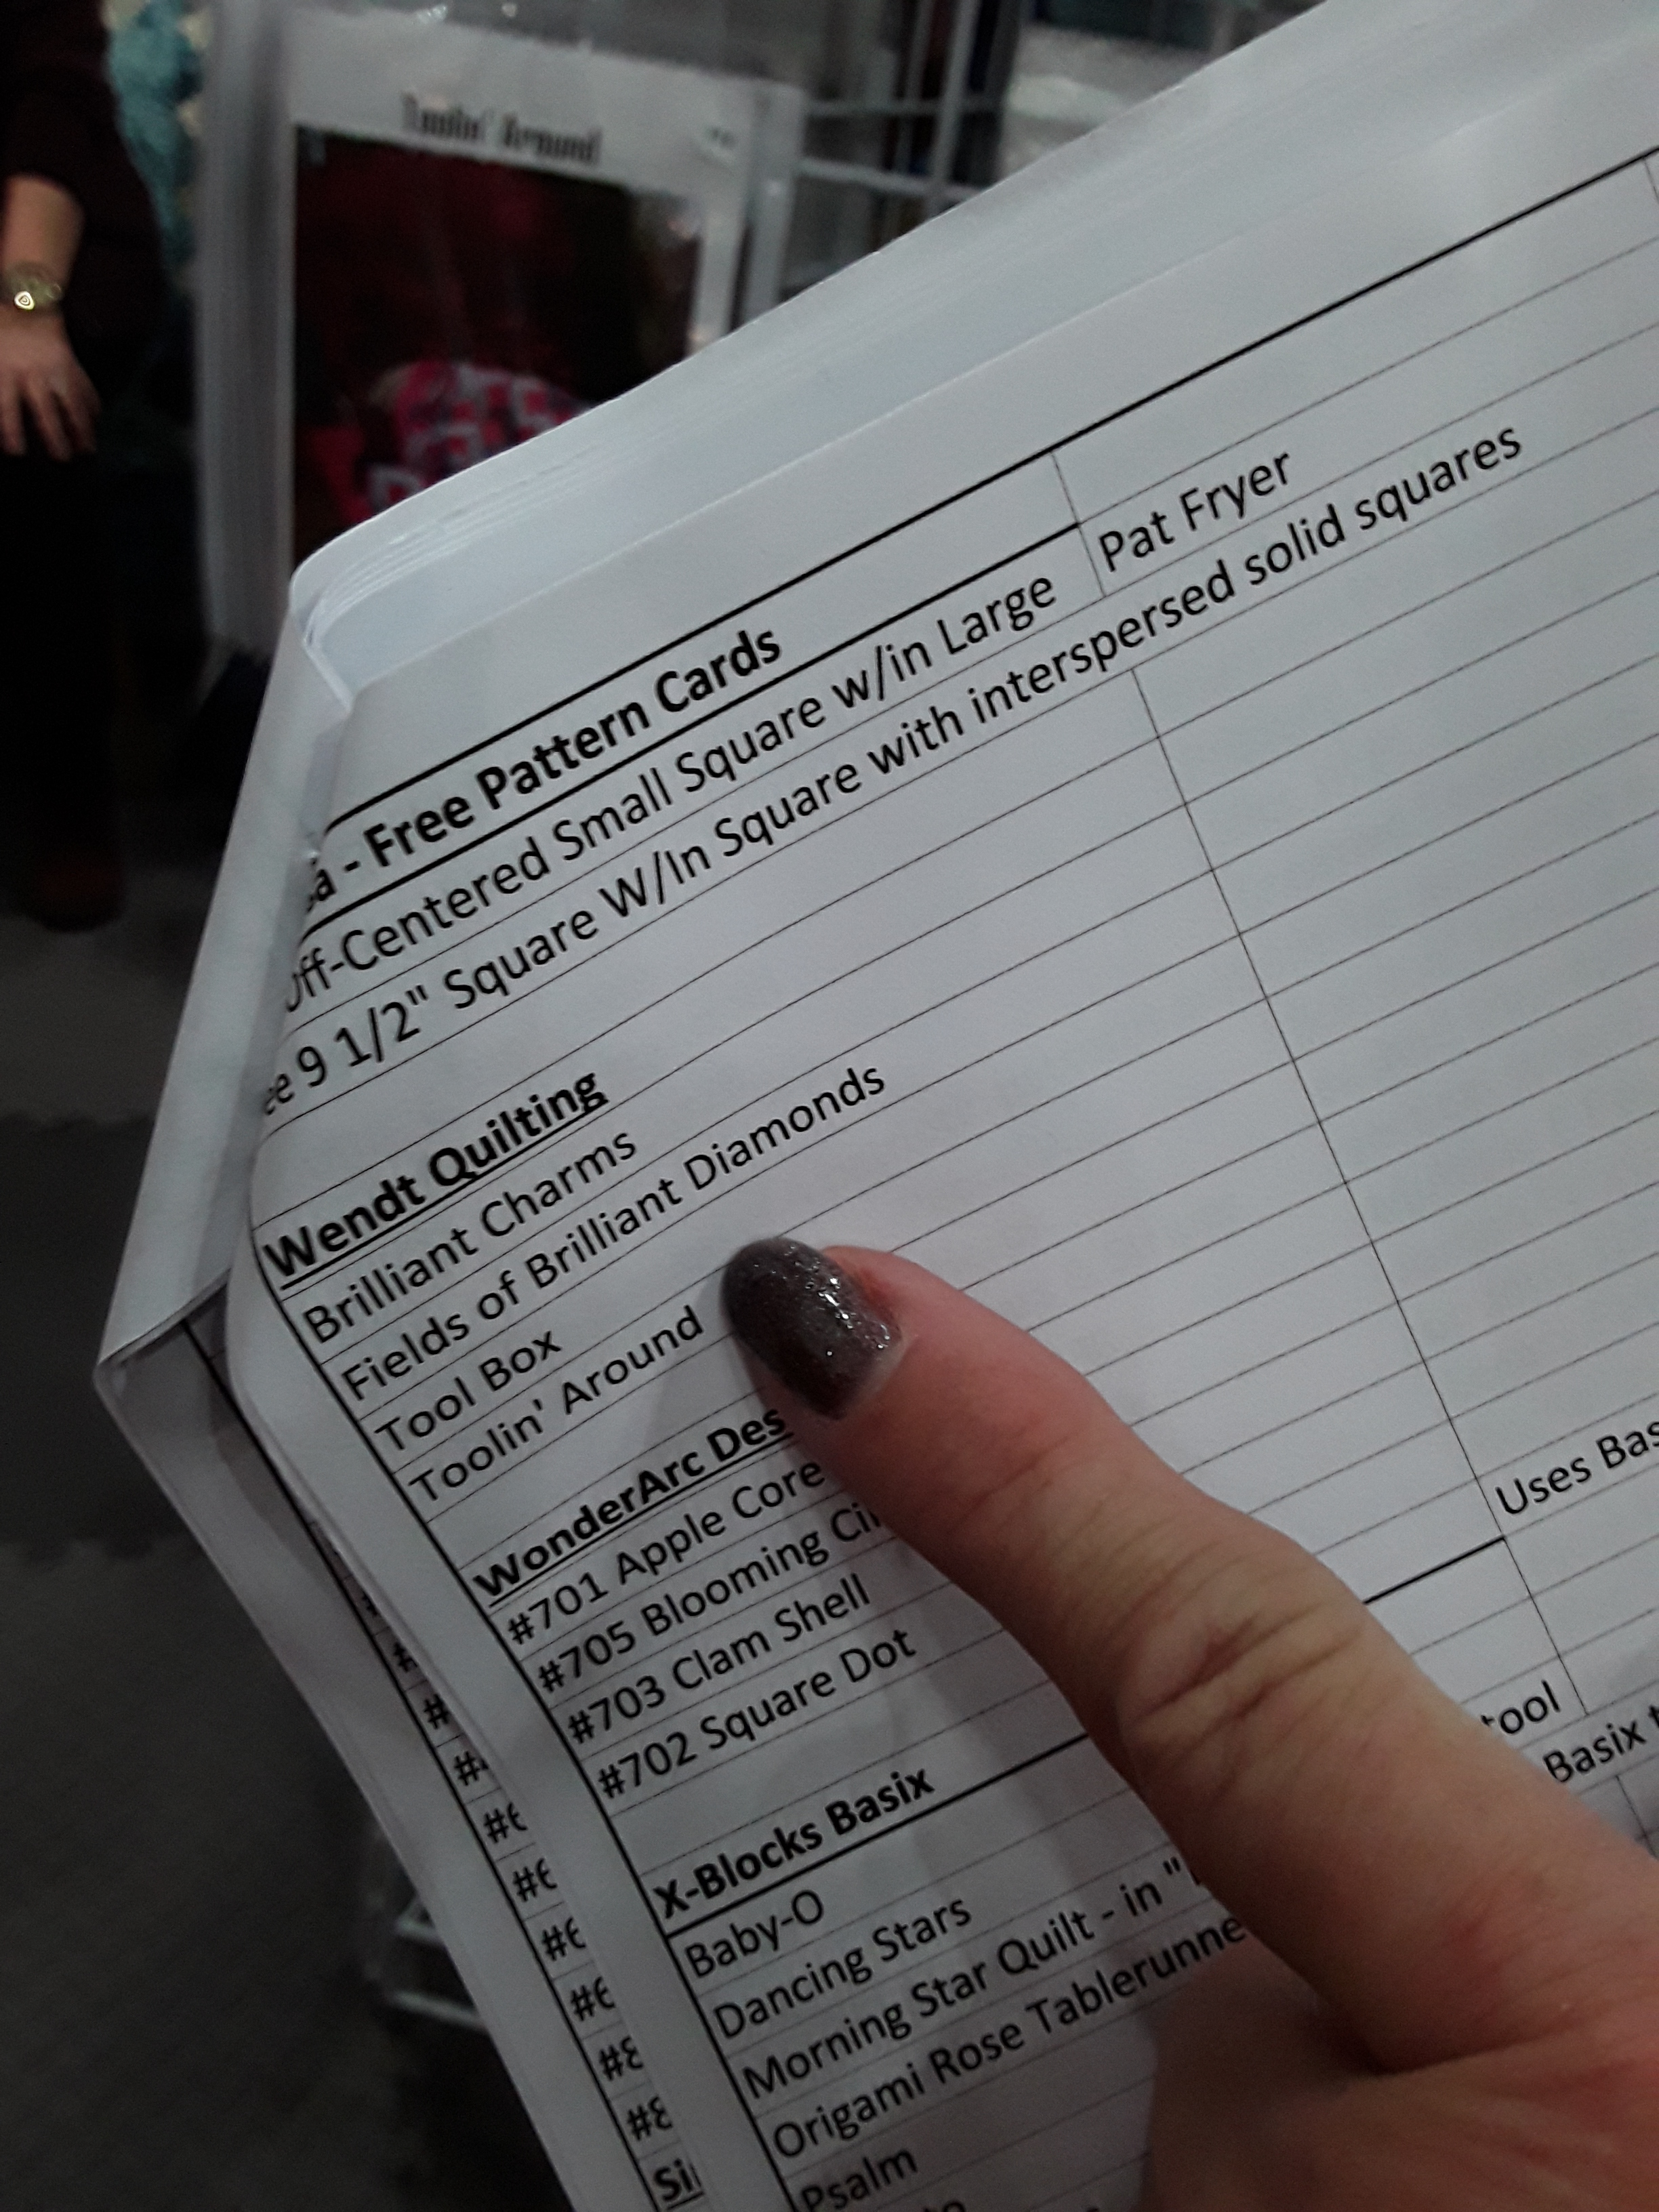 Toolin' Around
- Free Pattern Cards
Off-Centered Small Square w/in Large Pat Fryer
9 1/2" Square W/In Square with interspersed solid squares
Wendt Quilting
Brilliant Charms
Fields of Brilliant Diamonds
Tool Box
Toolin' Around
WonderArc Des
#701 Apple Core
#705 Blooming Ci
#703 Clam Shell
#702 Square Dot
Uses Bas
X-Blocks Basix
Baby-O
tool
Dancing Stars
Basix t
Morning Star Quilt - in "
Origami Rose Tablerunne
Psalm